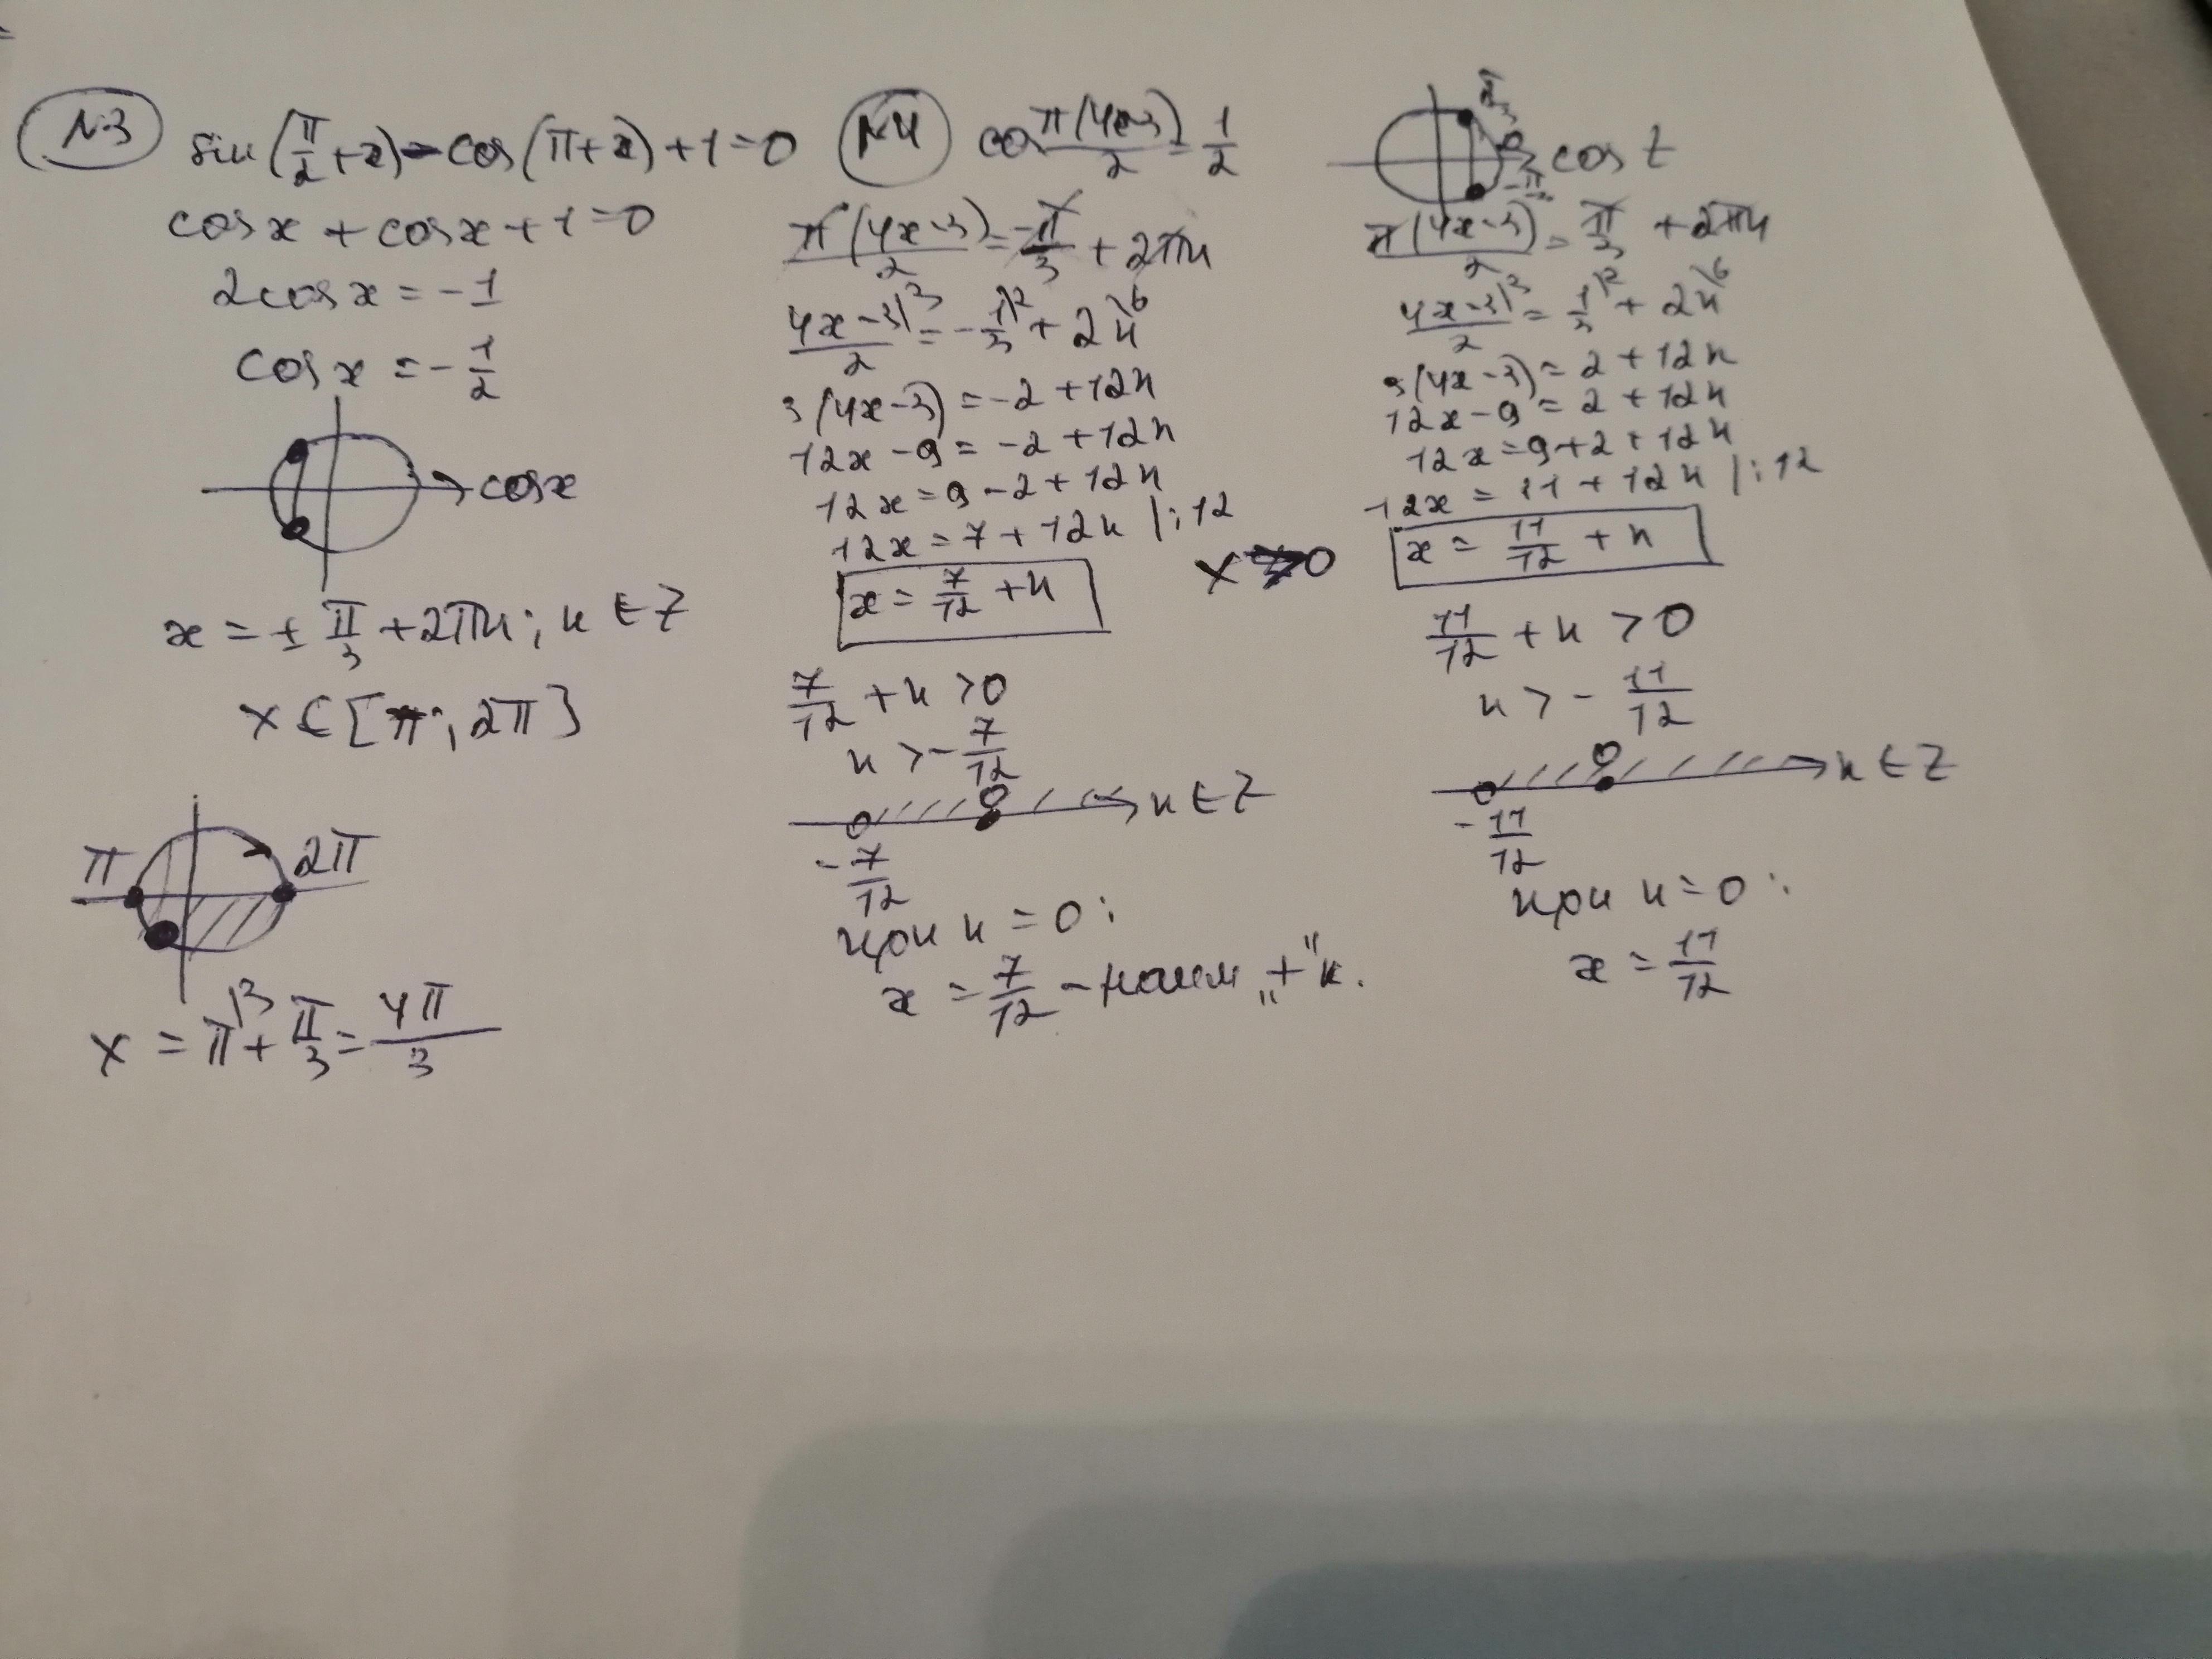 №3
sin(π/2+x)-cos(π+x)+1=0
cosx+cosx+1=0
2cosx=-1
cosx=-1/2
cosx
x=±π/3+2πn; n∈Z
x∈[π;2π]
π 2π
x=π|3+π/3=4π/3
№4
cos π(4x-3)/2=1/2
π(4x-3)/2=-π/3+2πn
4x-3|3/2=-1|2/3+2n\6
3(4x-3)=-2+12n
12x-9=-2+12n
12x=9-2+12n
12x=7+12n |:12
x=7/12+n
7/12+n>0
n>-7/12
0 n∈Z
-7/12
при n=0:
x=7/12-наим „+" к.
x>0
π/3
0 cos t
-π/3
π(4x-3)/2=π/3+2πn
4x-3|3/2=1|2/3+2n\6
3(4x-3)=2+12n
12x-9=2+12n
12x=9+2+12n
12x=11+12n |:12
x=11/12+n
11/12+n>0
n>-11/12
0 n∈Z
-11/12
при n=0:
x=11/12